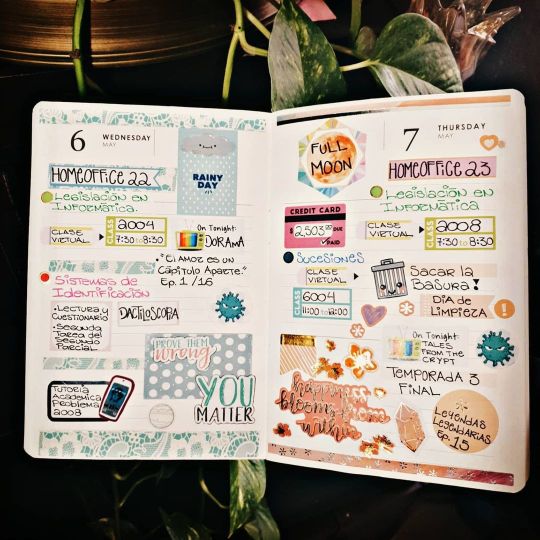 6 WEDNESDAY
MAY
HOMEOFFICE 22
RAINY
DAY
Legislación en
Informática.
CLASE
VIRTUAL
CLASS
2004
7:30 to 8:30
On Tonight:
DORAMA
• "El AMOR ES UN
CAPÍTULO APARTE."
Ep. 1 / 16
Sistemas de
Identificación
• LECTURA y
CUESTIONARIO
• SEGUNDA
TAREA DEL
SEGUNDO
PARCIAL
DACTILOSCOPIA
PROVE THEM
wrong
YOU
MATTER
TUTORIA
ACADEMICA
PROBLEMA
2008
7 THURSDAY
MAY
FULL
MOON
HOMEOFFICE 23
Legislación en
Informática
CREDIT CARD
$2,503.00 DUE
PAID
CLASE
VIRTUAL
CLASS
2008
7:30 to 8:30
SUCESIONES
CLASE
VIRTUAL
CLASS
6004
11:00 to 12:00
SACAR LA
BASURA!
DÍA DE
LIMPIEZA
On Tonight:
TALES
FROM THE
CRYPT
TEMPORADA 3
FINAL
happiness
blooms from
within
LEYENDAS
LEGENDARIAS
Ep. 15